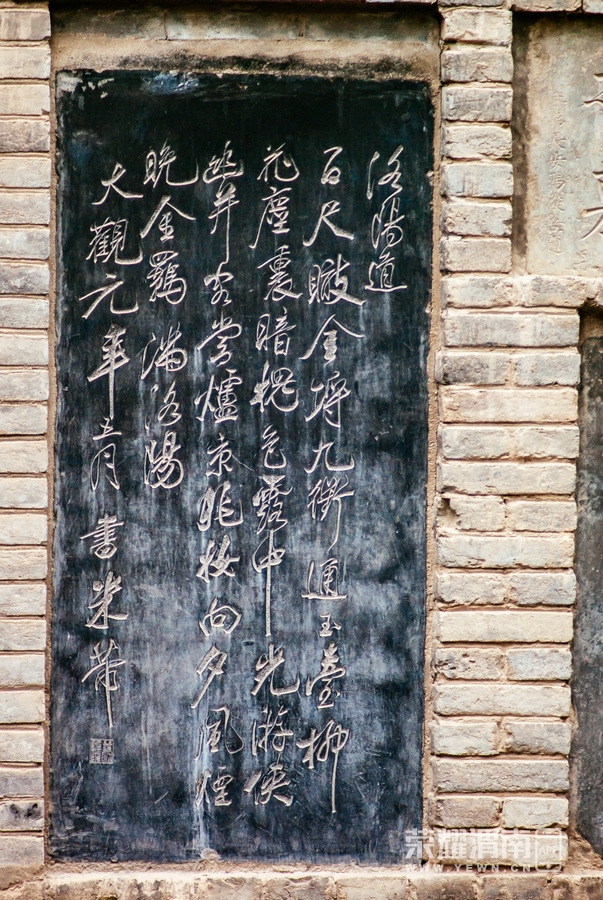 洛陽道
百尺瞰金埒九衢通玉堂柳
花塵裏暗槐色露中光游俠
幽并客當爐京兆妝向夕風煙
晚金羈滿洛陽
大觀元年五月書米芾
荣耀渭南网
WWW.YEWN.CN